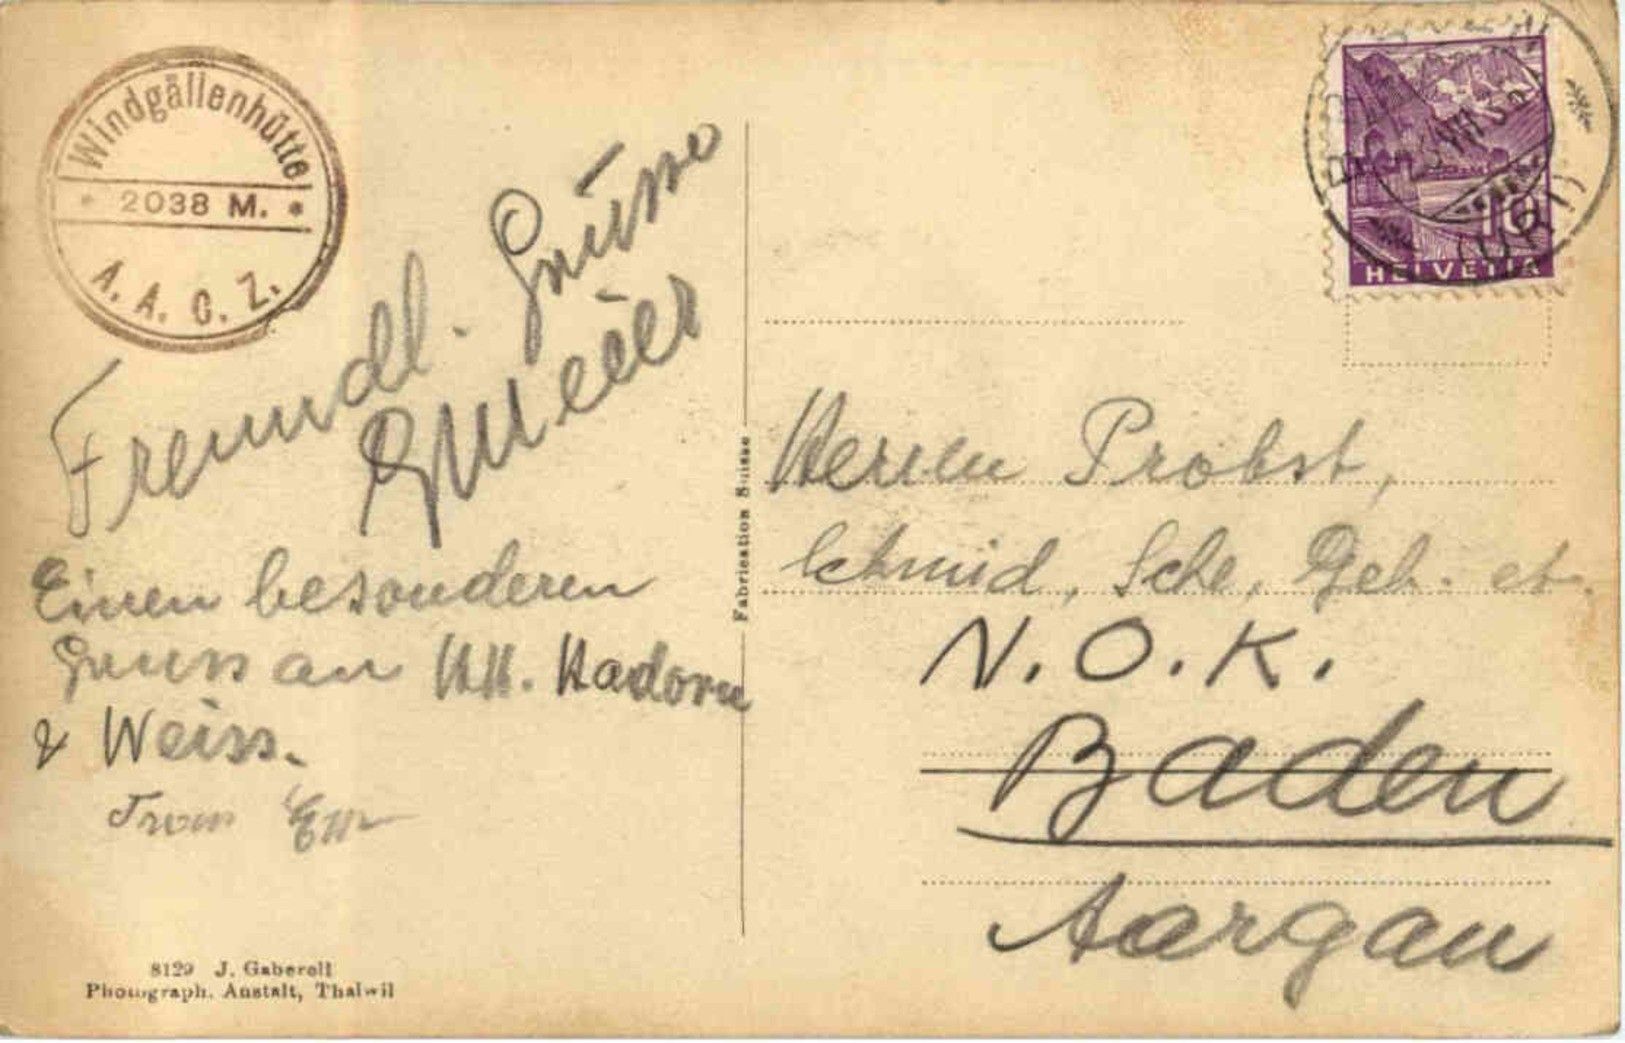 Windgällenhütte
* 2038 M. *
A. A. C. Z.
Freundl. Grüsse
Einen besonderen
Gruss an HH. Hadorn
& Weiss.
From
8129 J. Gaberell
Photograph. Anstalt, Thalwil
Fabrication Suisse
10
HELVETIA
(URI)
Herren Probst,
Schmid, Sche, Geh. et.
N. O. K.
Baden
Aargau